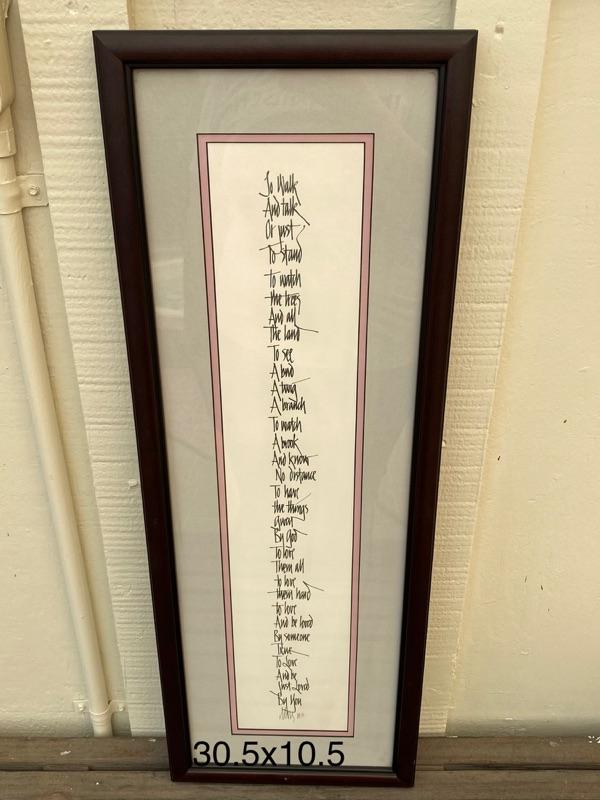 To Walk
And talk
Or just
To stand
To watch
the trees
And all
The land
To see
A bud
A twig
A branch
To watch
A brook
And know
No distance
To have
the things
given
By God
To love
Them all
to love
them hard
to love
And be loved
By someone
True
To Love
And be
Just Loved
By You
30.5x10.5